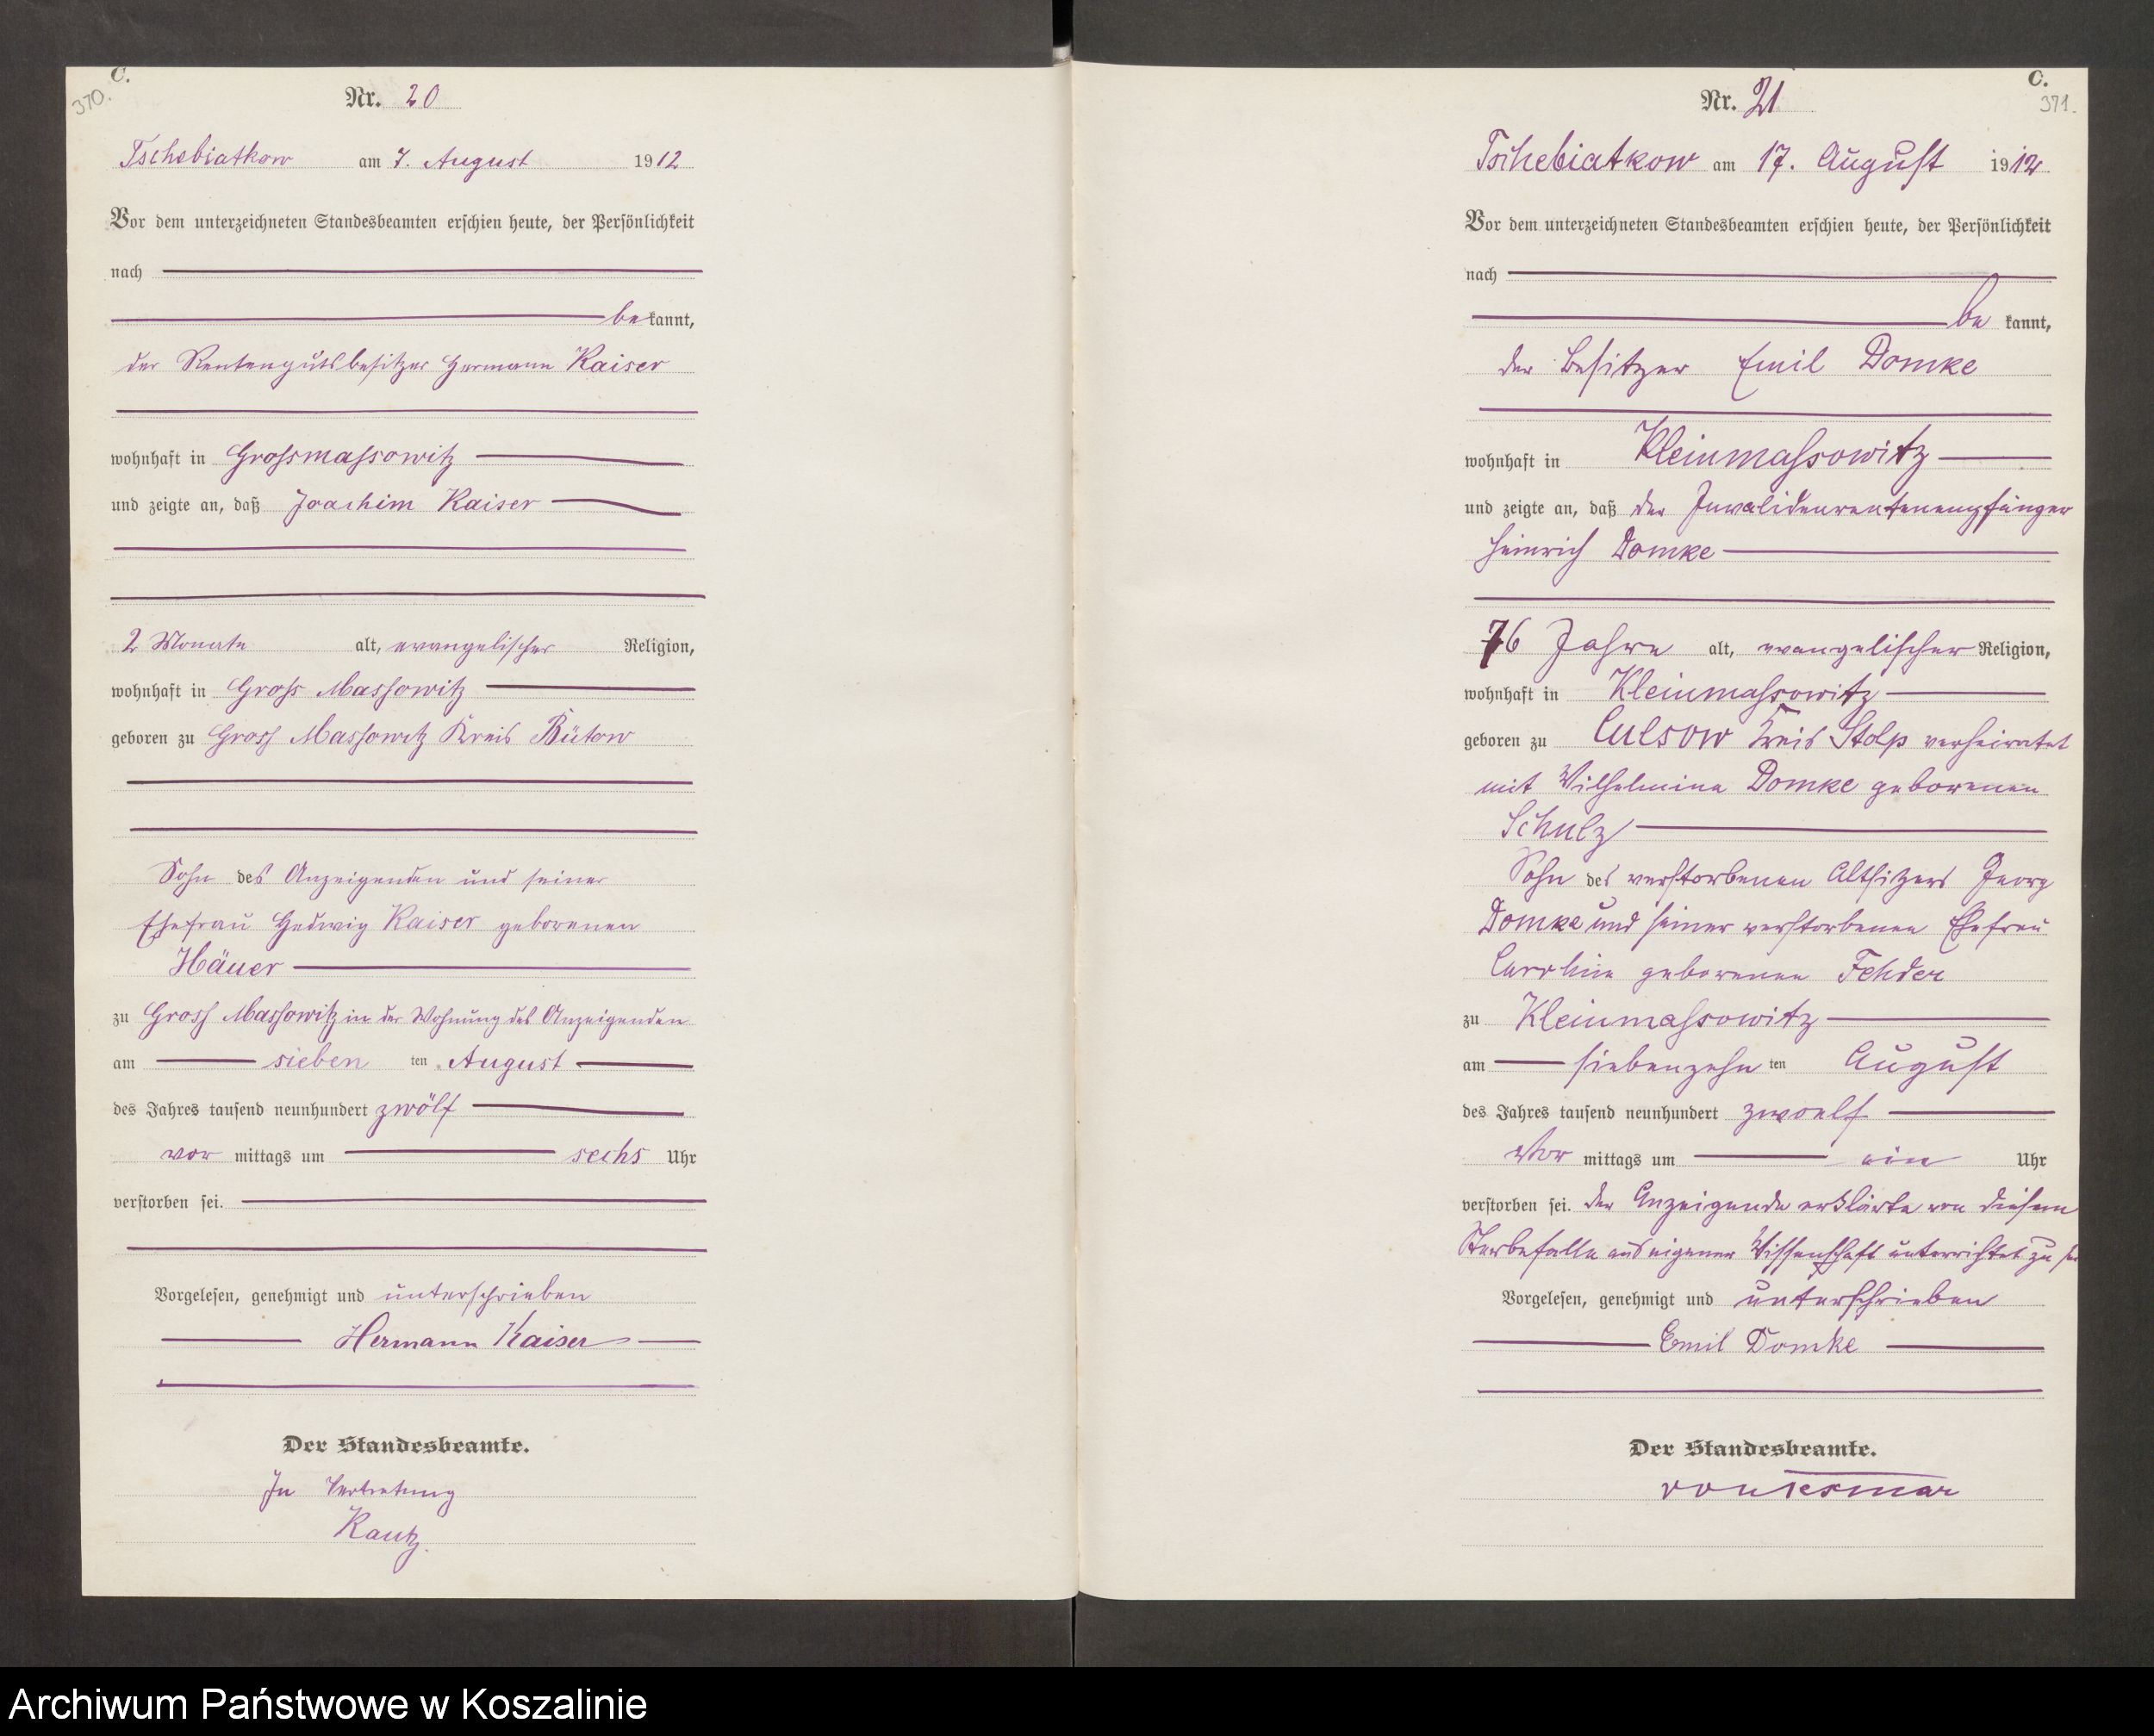 C.
370.
Nr. 20
Tschebiatkow am 7. August 1912
Vor dem unterzeichneten Standesbeamten erschien heute, der Persönlichkeit
nach
bekannt,
der Rentengutsbesitzer Hermann Kaiser
wohnhaft in Grossmassowitz
und zeigte an, daß Joachim Kaiser
2 Monate alt, evangelischer Religion,
wohnhaft in Gross Massowitz
geboren zu Gross Massowitz Kreis Bütow
Sohn des Anzeigenden und seiner
Ehefrau Hedwig Kaiser geborenen
Häuer
zu Gross Massowitz in der Wohnung des Anzeigenden
am sieben ten August
des Jahres tausend neunhundert zwölf
vor mittags um sechs Uhr
verstorben sei.
Vorgelesen, genehmigt und unterschrieben
Hermann Kaiser
Der Standesbeamte.
In Vertretung
Kautz.
C.
371.
Nr. 21
Tschebiatkow am 17. August 1912
Vor dem unterzeichneten Standesbeamten erschien heute, der Persönlichkeit
nach
be kannt,
der Besitzer Emil Domke
wohnhaft in Kleinmassowitz
und zeigte an, daß der Invalidenrentenempfänger
Heinrich Domke
76 Jahre alt, evangelischer Religion,
wohnhaft in Kleinmassowitz
geboren zu Culsow Kreis Stolp verheiratet
mit Wilhelmine Domke geborenen
Schulz
Sohn des verstorbenen Altsitzers Georg
Domke und seiner verstorbenen Ehefrau
Caroline geborenen
zu Kleinmassowitz
am siebenzehn ten August
des Jahres tausend neunhundert zwoelf
Vor mittags um ein Uhr
verstorben sei. Der Anzeigende erklärte von diesem
Sterbefalle aus eigener Wissenschaft unterrichtet zu sein
Vorgelesen, genehmigt und unterschrieben
Emil Domke
Der Standesbeamte.
von Tesmar
Archiwum Państwowe w Koszalinie